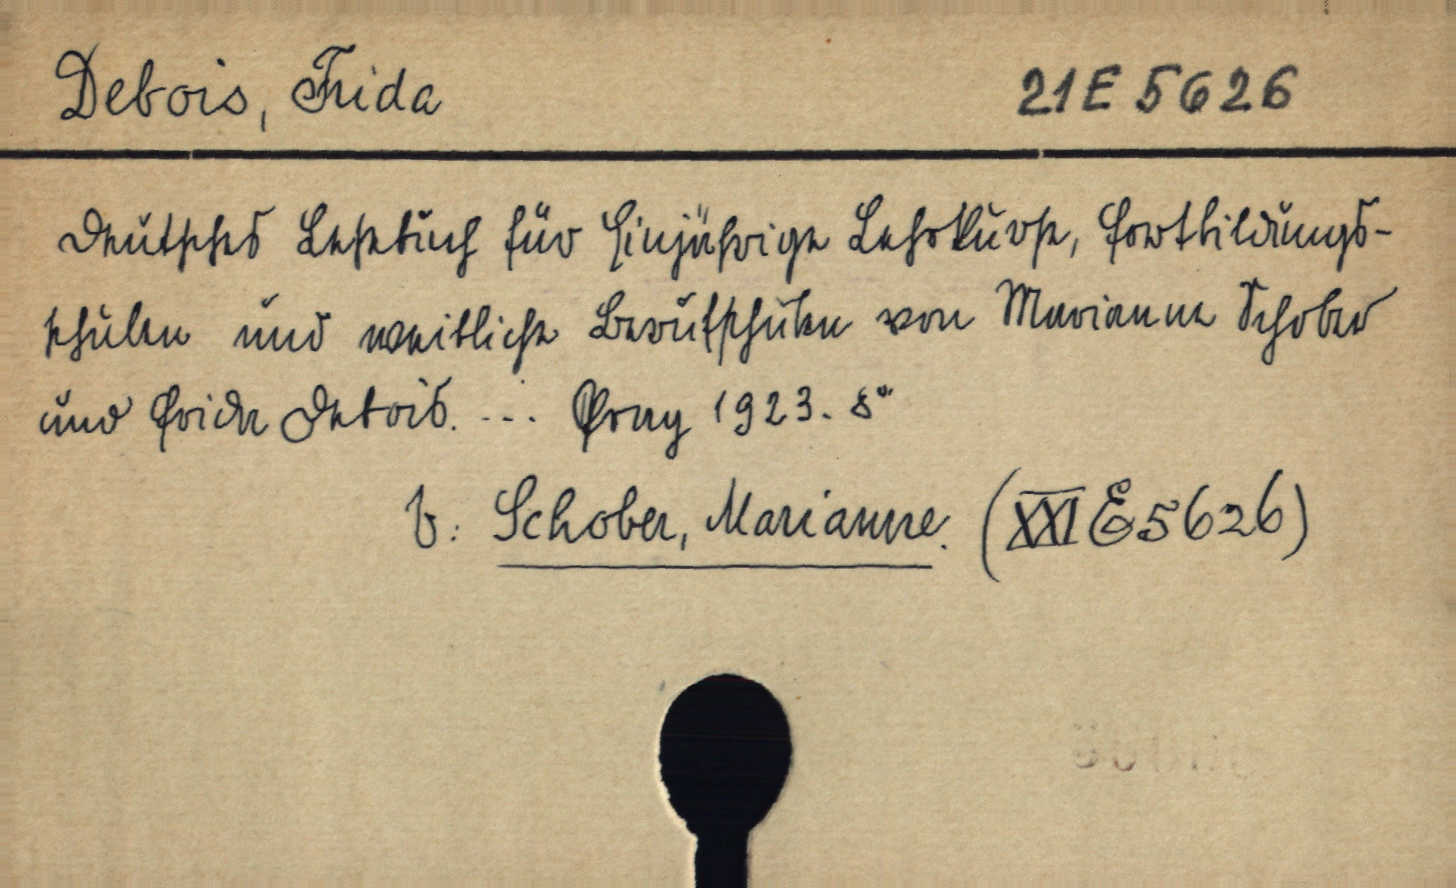 Debois, Frida 21 E 5626
Deutsches Lesebuch für Einjährige Lehrkurse, Fortbildungs-
schulen und weibliche Berufsschulen von Marianne Schober
und Frida Debois. ... Prag 1923. 8°
b: Schober, Marianne. (XXI E 5626)